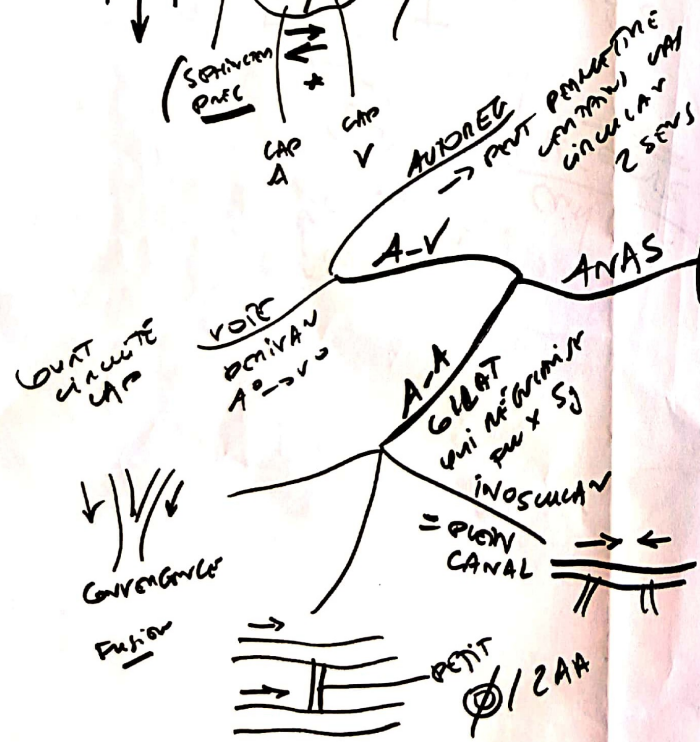 SPHINCTER
PREC
*
CAP
A
CAP
V
AUTOREG
→ PEUT PERMETTRE
CERTAINS CAS
CIRCULAR
2 SENS
A-V
ANAS
VOIE
DERIVAN
A° → V°
COURT
CIRCUITÉ
CAP
A-A
COLLAT
INOSCULAR
= PLEIN
CANAL
CONVERGENCE
FUSION
PETIT
/ 2 AA